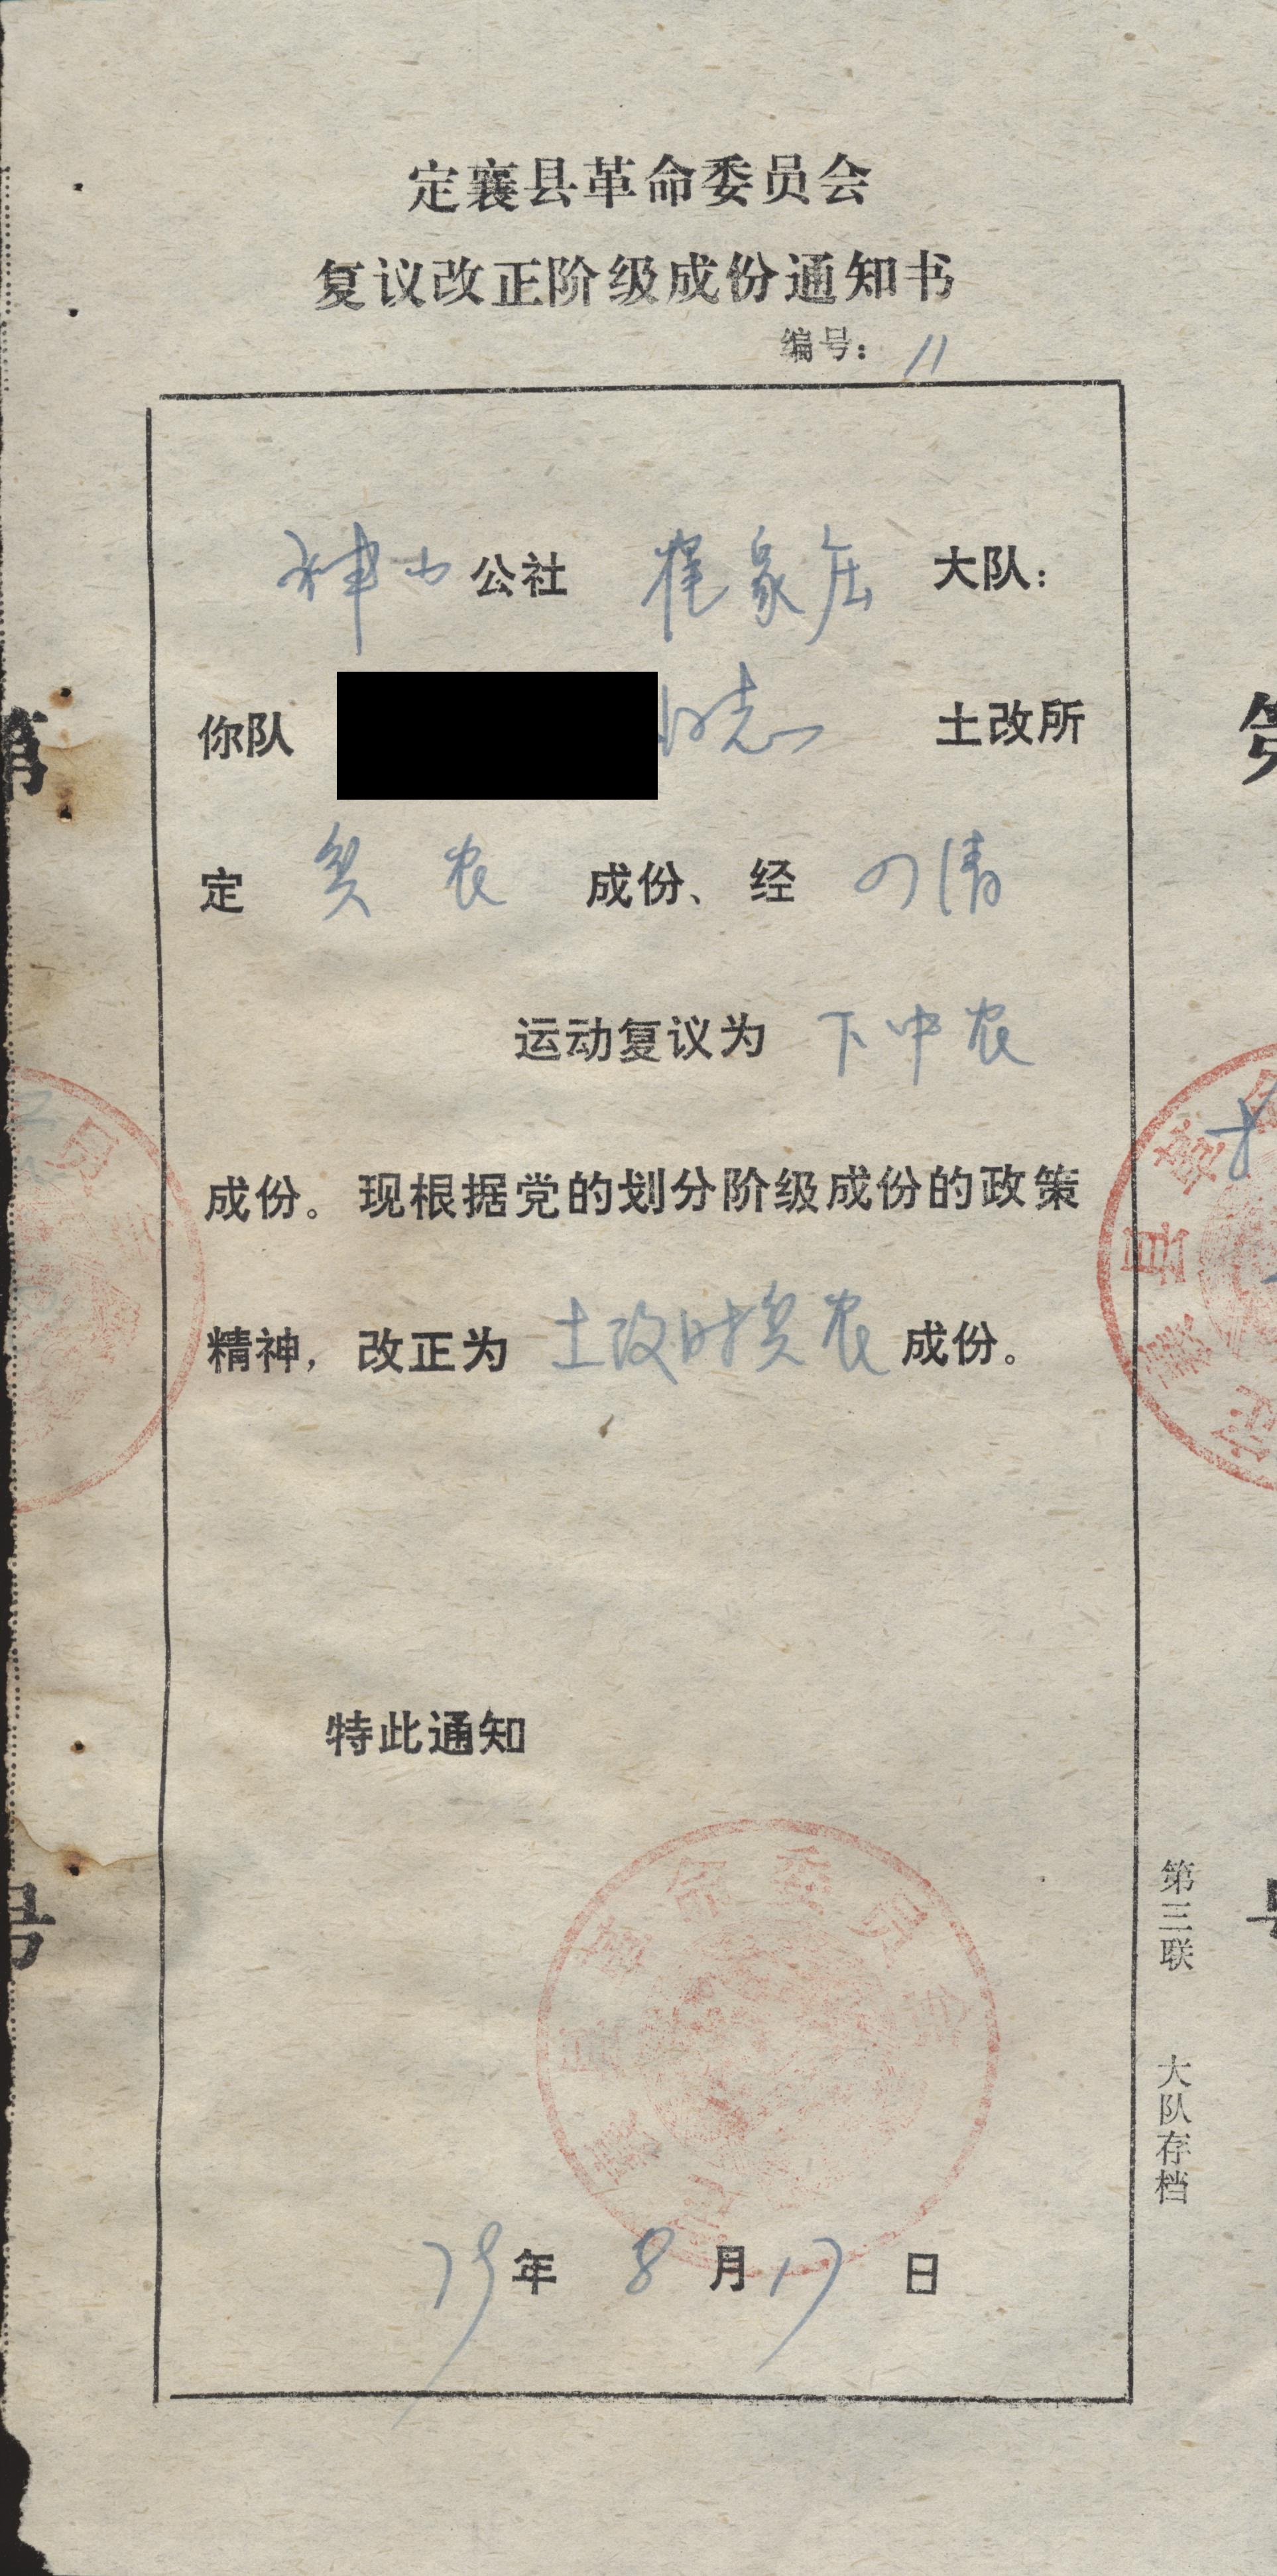 定襄县革命委员会
复议改正阶级成份通知书
编号：11
神山公社 崔家庄 大队：
你队 同志 土改所
定 贫农 成份、经 四清
运动复议为 下中农
成份。现根据党的划分阶级成份的政策
精神，改正为 土改时贫农 成份。
特此通知
79年 8月17日
第三联 大队存档
第
号